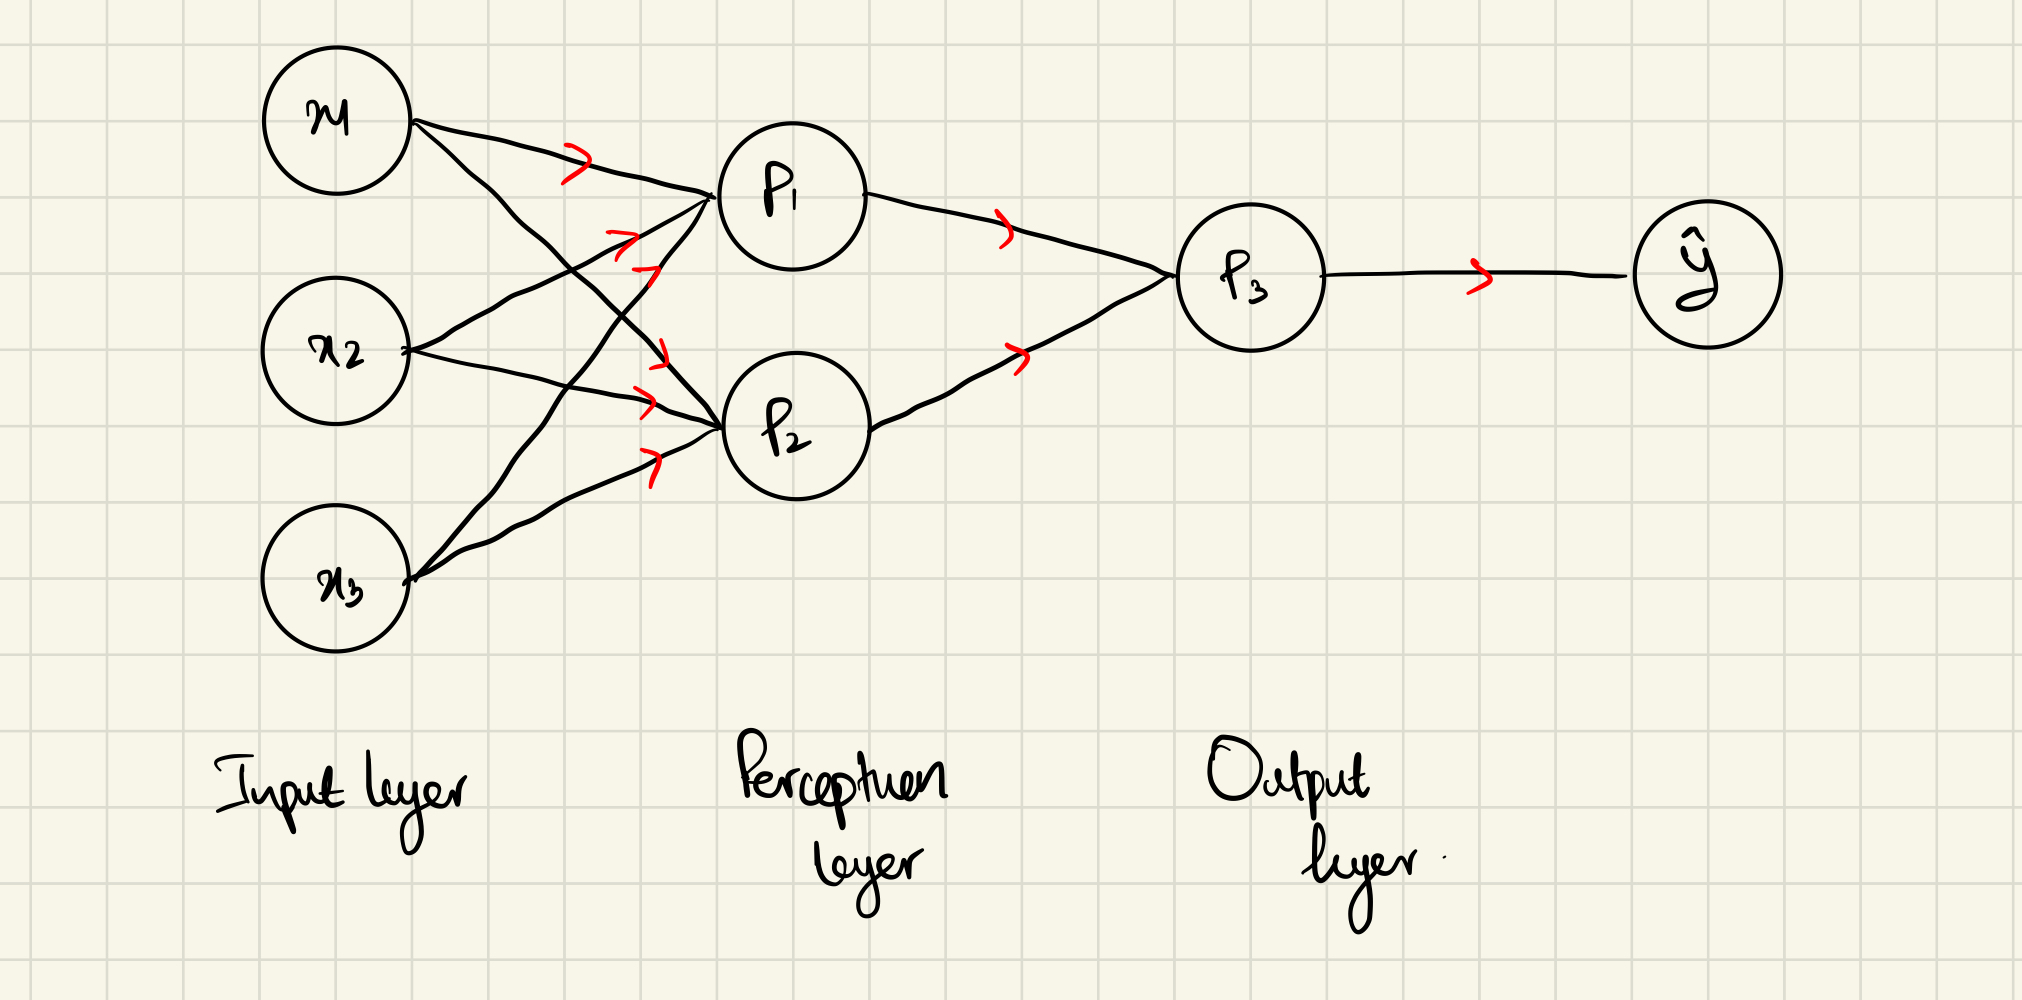 x1
P1
x2
P2
P3
ŷ
x3
Input layer
Perceptron
layer
Output
layer.